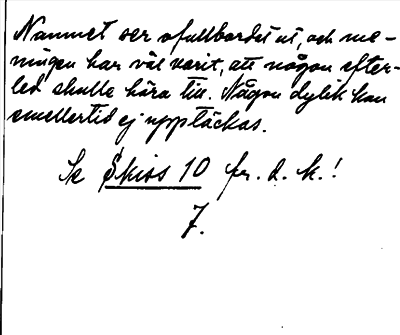 Namnet ser ofullbordat ut, och me-
ningen har väl varit, att någon efter-
led skulle höra till. Någon dylik kan
emellertid ej upptäckas.
Se Skiss 10 fr. d. k.!
7.